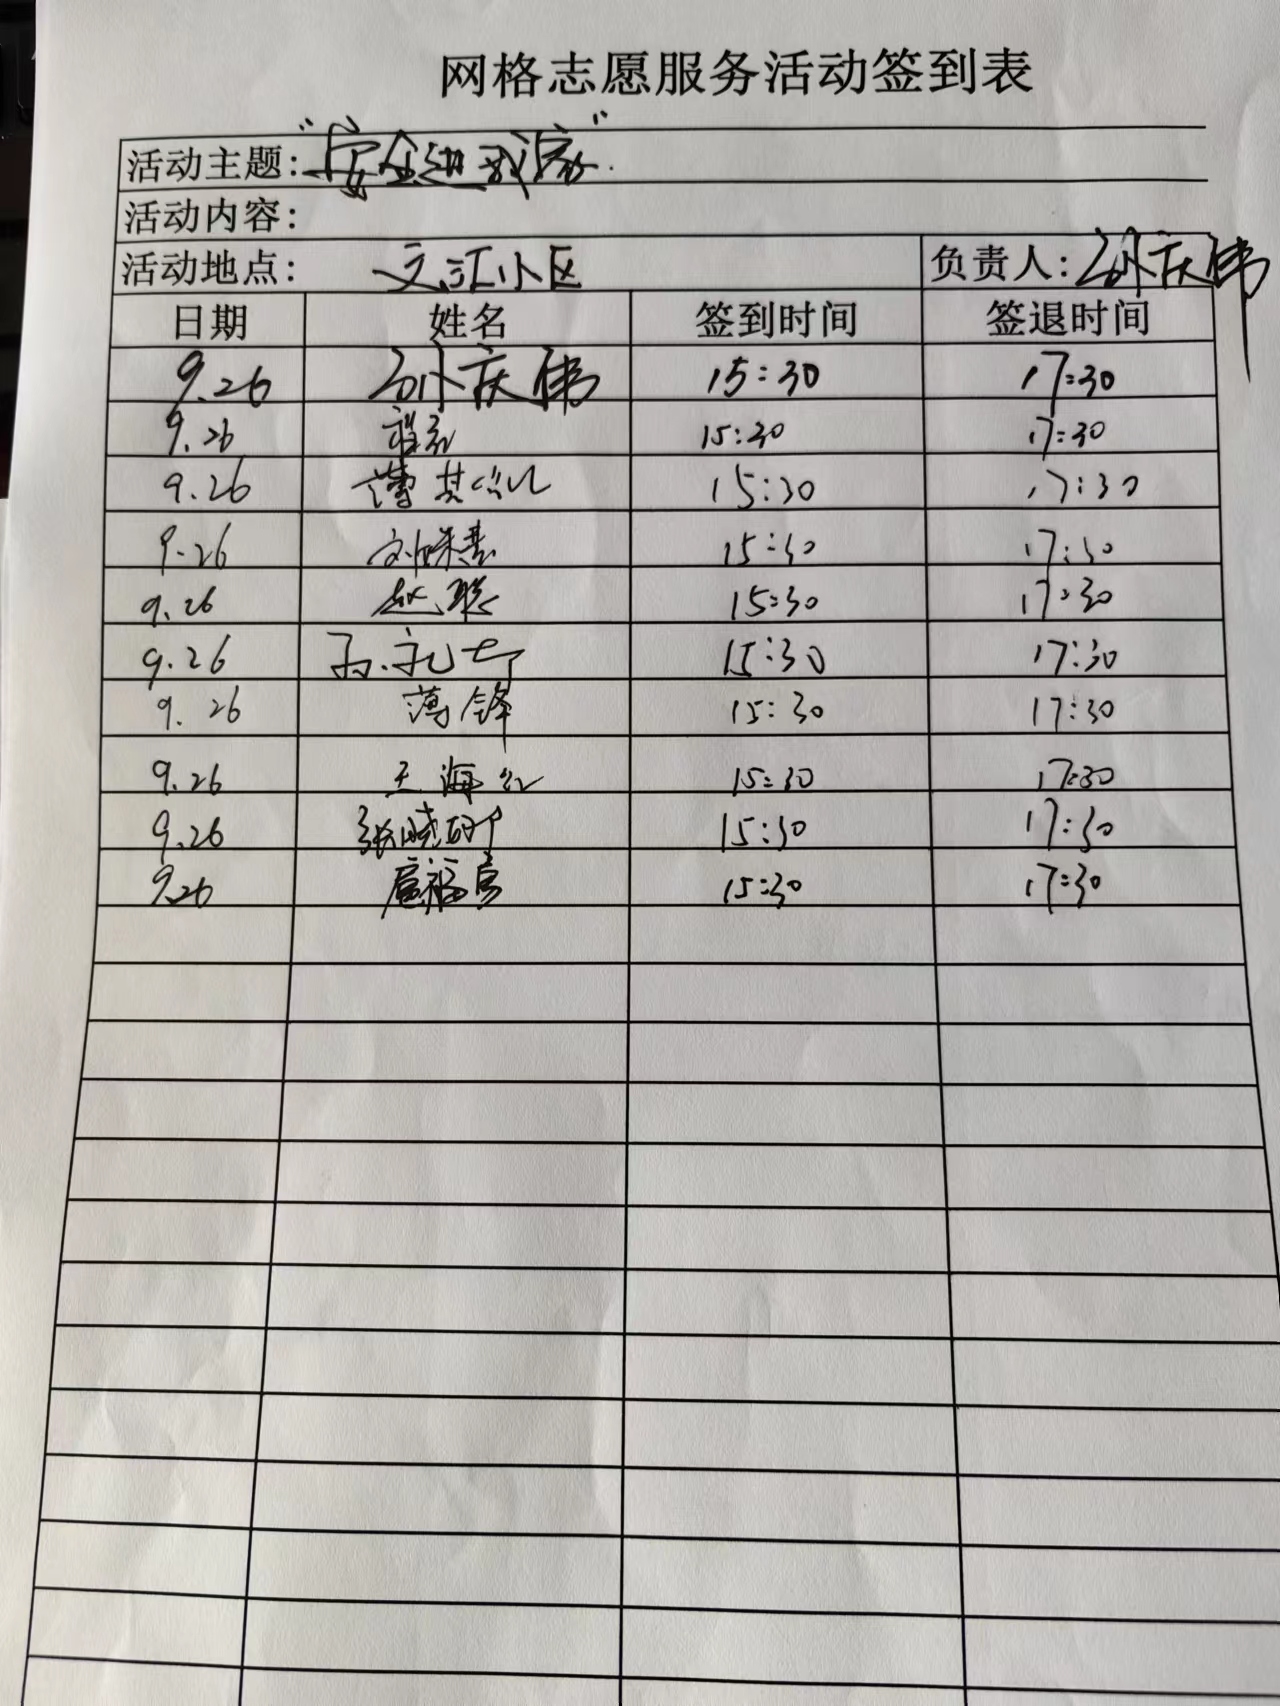 网格志愿服务活动签到表
活动主题：“安全进我家”
活动内容：
活动地点： 文汇小区 负责人：孙庆伟
日期 姓名 签到时间 签退时间
9.26 孙庆伟 15:30 17:30
9.26 15:30 17:30
9.26 薄其 15:30 17:30
9.26 15:30 17:30
9.26 赵聪 15:30 17:30
9.26 孙 15:30 17:30
9.26 薄锋 15:30 17:30
9.26 王海红 15:30 17:30
9.26 张晓 15:30 17:30
9.26 15:30 17:30